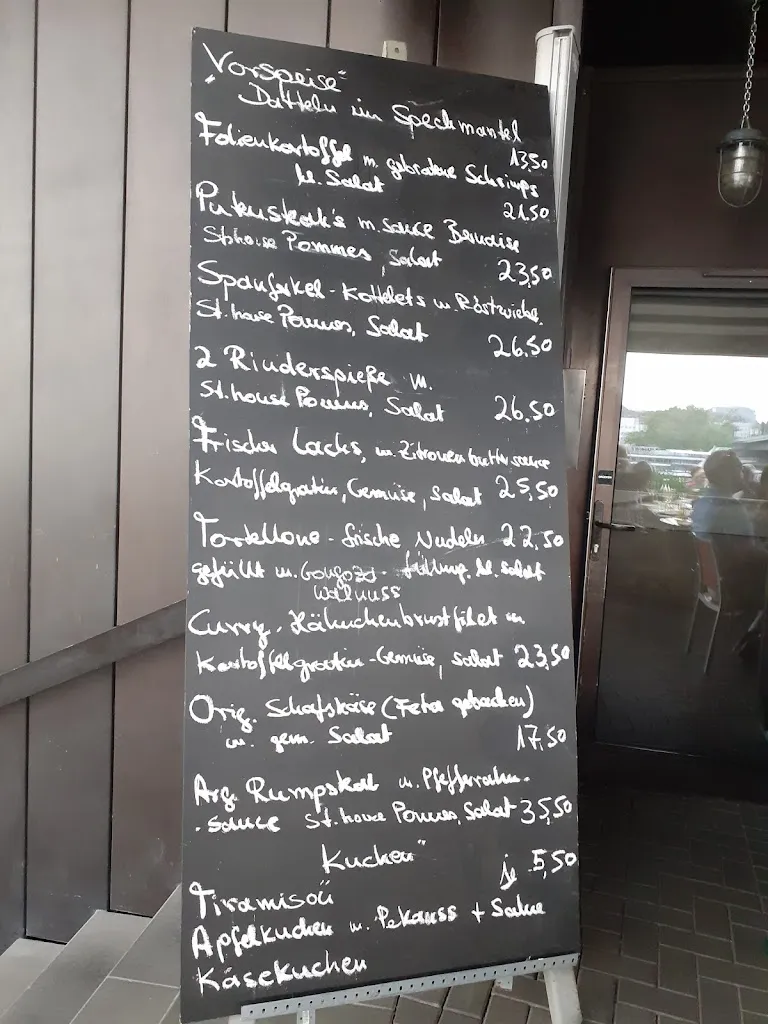 "Vorspeise"
Datteln im Speckmantel
13,50
Folienkartoffel m. gebratene Schrimps
M. Salat
21.50
Putensteak's m. Sauce Bernaise
St.house Pommes, Salat 23,50
Spanferkel-Kottelets m. Röstzwiebel.
St. house Pommes, Salat 26.50
2 Rinderspieße m.
St. house Pommes, Salat 26.50
Frischer Lachs, m. Zitronenbuttersauce
Kartoffelgratin, Gemüse, Salat 25,50
Tortellone - frische Nudeln 22,50
gefüllt m. Gorgozo - füllung. M. Salat
Walnuss
Curry, Hähnchenbrustfilet m
Kartoffelgratin - Gemüse, Salat 23,50
Orig. Schafskäse (Feta gebacken)
m. gem. Salat 17,50
Arg. Rumpsteak m. Pfefferrahm-
-sauce St. house Pommes, Salat 35,50
Kuchen" je 5,50
Tiramisou
Apfelkuchen m. Pekanuss + Sahne
Käsekuchen